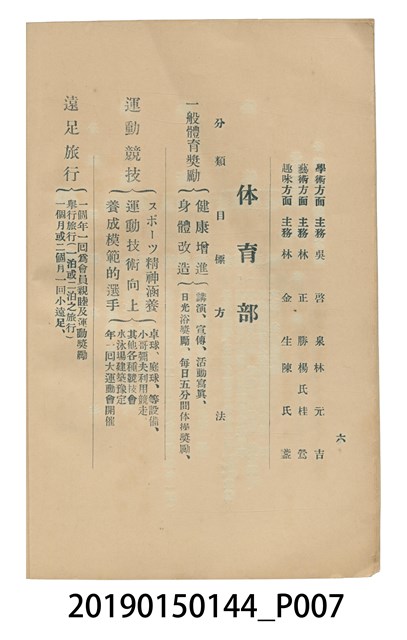 學術方面 主務 吳啓泉 林元吉
藝術方面 主務 林正勝 楊氏桂鶯
趣味方面 主務 林金生 陳氏蓋
体育部
分類 目標 方法
一般體育獎勵
健康增進
身體改造
講演、宣傳、活動寫眞、
日光浴獎勵、每日五分間体操獎勵、
運動競技
スポーツ精神涵養
運動技術向上
養成模範的選手
卓球、庭球、等設備、
小哥爾夫利用競走
其他各種競技會
水泳場建築豫定
年一回大運動會開催
遠足旅行
一個年一回爲會員親睦及運動獎勵
舉行旅行(一泊或二泊之旅行)
一個月或二個月一回小遠足
六
20190150144_P007